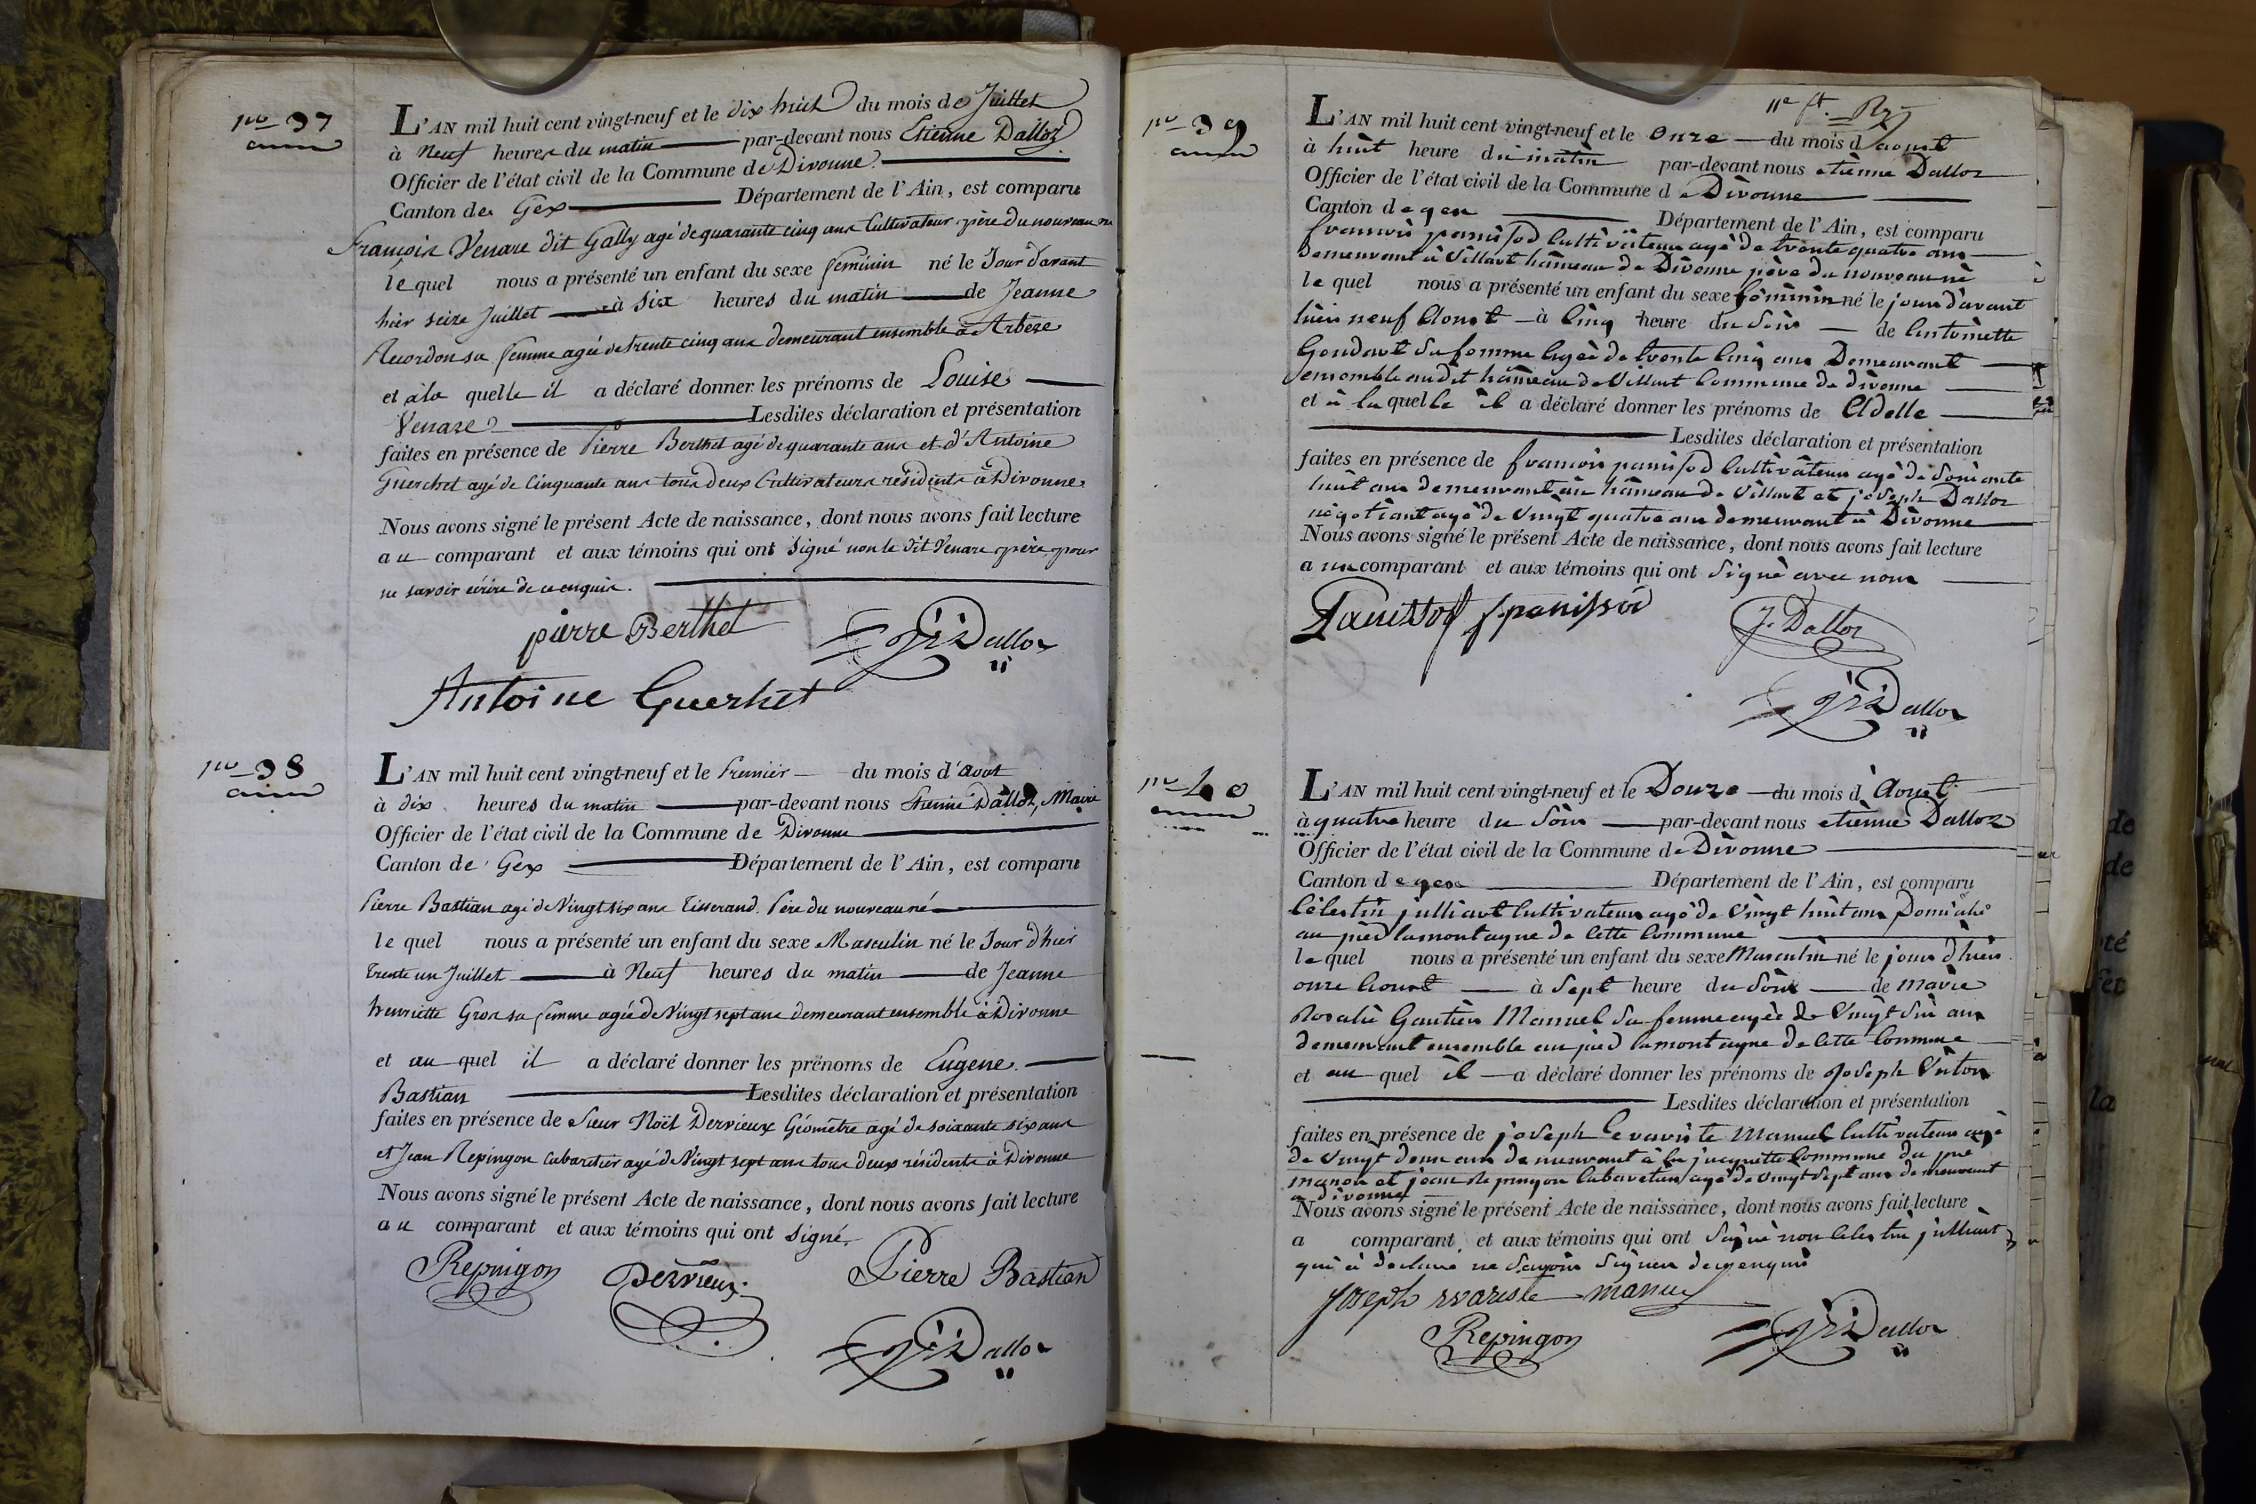 no 37
L'AN mil huit cent vingt-neuf et le dix huit du mois de Juillet
à Neuf heures du matin par-devant nous Etienne Dalloz
Officier de l'état civil de la Commune de Divonne
Canton de Gex Département de l'Ain, est comparu
François Venare dit Gally agé de quarante cinq ans Cultivateur père du nouveau né
le quel nous a présenté un enfant du sexe feminin né le Jour d'avant
hier seize Juillet à six heures du matin de Jeanne
Recordon sa femme agée de trente cinq ans demeurant ensemble à Arbere
et à la quelle il a déclaré donner les prénoms de Louise
Venare Lesdites déclaration et présentation
faites en présence de Pierre Berthet agé de quarante ans et d'Antoine
Guerchet agé de Cinquante ans tous deux Cultivateurs résidents à Divonne
Nous avons signé le présent Acte de naissance, dont nous avons fait lecture
au comparant et aux témoins qui ont signé non le dit Venare père pour
ne savoir écrire de ce enquis.
pierre Berthet
Dalloz
Antoine Guerhet
no 38
L'AN mil huit cent vingt-neuf et le Premier du mois d'aout
à dix heures du matin par-devant nous Etienne Dalloz, Maire
Officier de l'état civil de la Commune de Divonne
Canton de Gex Département de l'Ain, est comparu
Pierre Bastian agé de Vingt six ans Tisserand Père du nouveau né
le quel nous a présenté un enfant du sexe Masculin né le Jour d'hier
trente un Juillet à Neuf heures du matin de Jeanne
henriette Gros sa femme agée de Vingt sept ans demeurant ensemble à Divonne
et au quel il a déclaré donner les prénoms de Eugene
Bastian Lesdites déclaration et présentation
faites en présence de Sieur Noël Dervieux Géomètre agé de soixante six ans
et Jean Repingon Cabaretier agé de Vingt sept ans tous deux résidents à Divonne
Nous avons signé le présent Acte de naissance, dont nous avons fait lecture
au comparant et aux témoins qui ont signé.
Repingon Dervieux Pierre Bastian
Dalloz
no 39
L'AN mil huit cent vingt-neuf et le onze du mois d aoust
à huit heure du matin par-devant nous etienne Dalloz
Officier de l'état civil de la Commune de Divonne
Canton de gex Département de l'Ain, est comparu
francois panissod Cultivateur agé de trente quatre ans
Demeurant à Villart hâmeau de Divonne père du nouveau né
le quel nous a présenté un enfant du sexe féminin né le jour d'avant
hier neuf Aoust à Cinq heure du Soir de Antoinette
Goudart Sa femme Agée de trente Cinq ans Demeurant
ensemble audit hâmeau de Villart Commune de divonne
et à la quelle il a déclaré donner les prénoms de Adelle
Lesdites déclaration et présentation
faites en présence de francois panissod Cultivateur agé de Soixante
huit ans demeurant au hâmeau de Villart et joseph Dalloz
négotiant agé de Vingt quatre ans demeurant à Divonne
Nous avons signé le présent Acte de naissance, dont nous avons fait lecture
a un comparant et aux témoins qui ont Signé avec nous
Panissod f panissod J. Dalloz
Dalloz
no 40
L'AN mil huit cent vingt-neuf et le Douze du mois d' Aoust
à quatre heure du Soir par-devant nous etienne Dalloz
Officier de l'état civil de la Commune de Divonne
Canton de gex Département de l'Ain, est comparu
Célestin julliart Cultivateur agé de Vingt huit ans Domicilié
au pied lamontagne de Cette Commune
le quel nous a présenté un enfant du sexe Masculin né le jour d'hier
onze Aoust à Sept heure du Soir de marie
Rosalie Gautier Manuel Sa femme agée de Vingt Six ans
demeurant ensemble au pied lamontagne de Cette Commune
et au quel il a déclaré donner les prénoms de joseph Victor
Lesdites déclaration et présentation
faites en présence de joseph Evariste Manuel Cultivateur agé
de Vingt deux ans demeurant à la jacquette Commune du
et jean Repingon Cabaretier agé de Vingt Sept ans demeurant
a divonne
Nous avons signé le présent Acte de naissance, dont nous avons fait lecture
a comparant et aux témoins qui ont Signé non Celestin julliart
qui à declaré ne Savoir Signer de ce enquis
Joseph evariste manuel
Repingon Dalloz